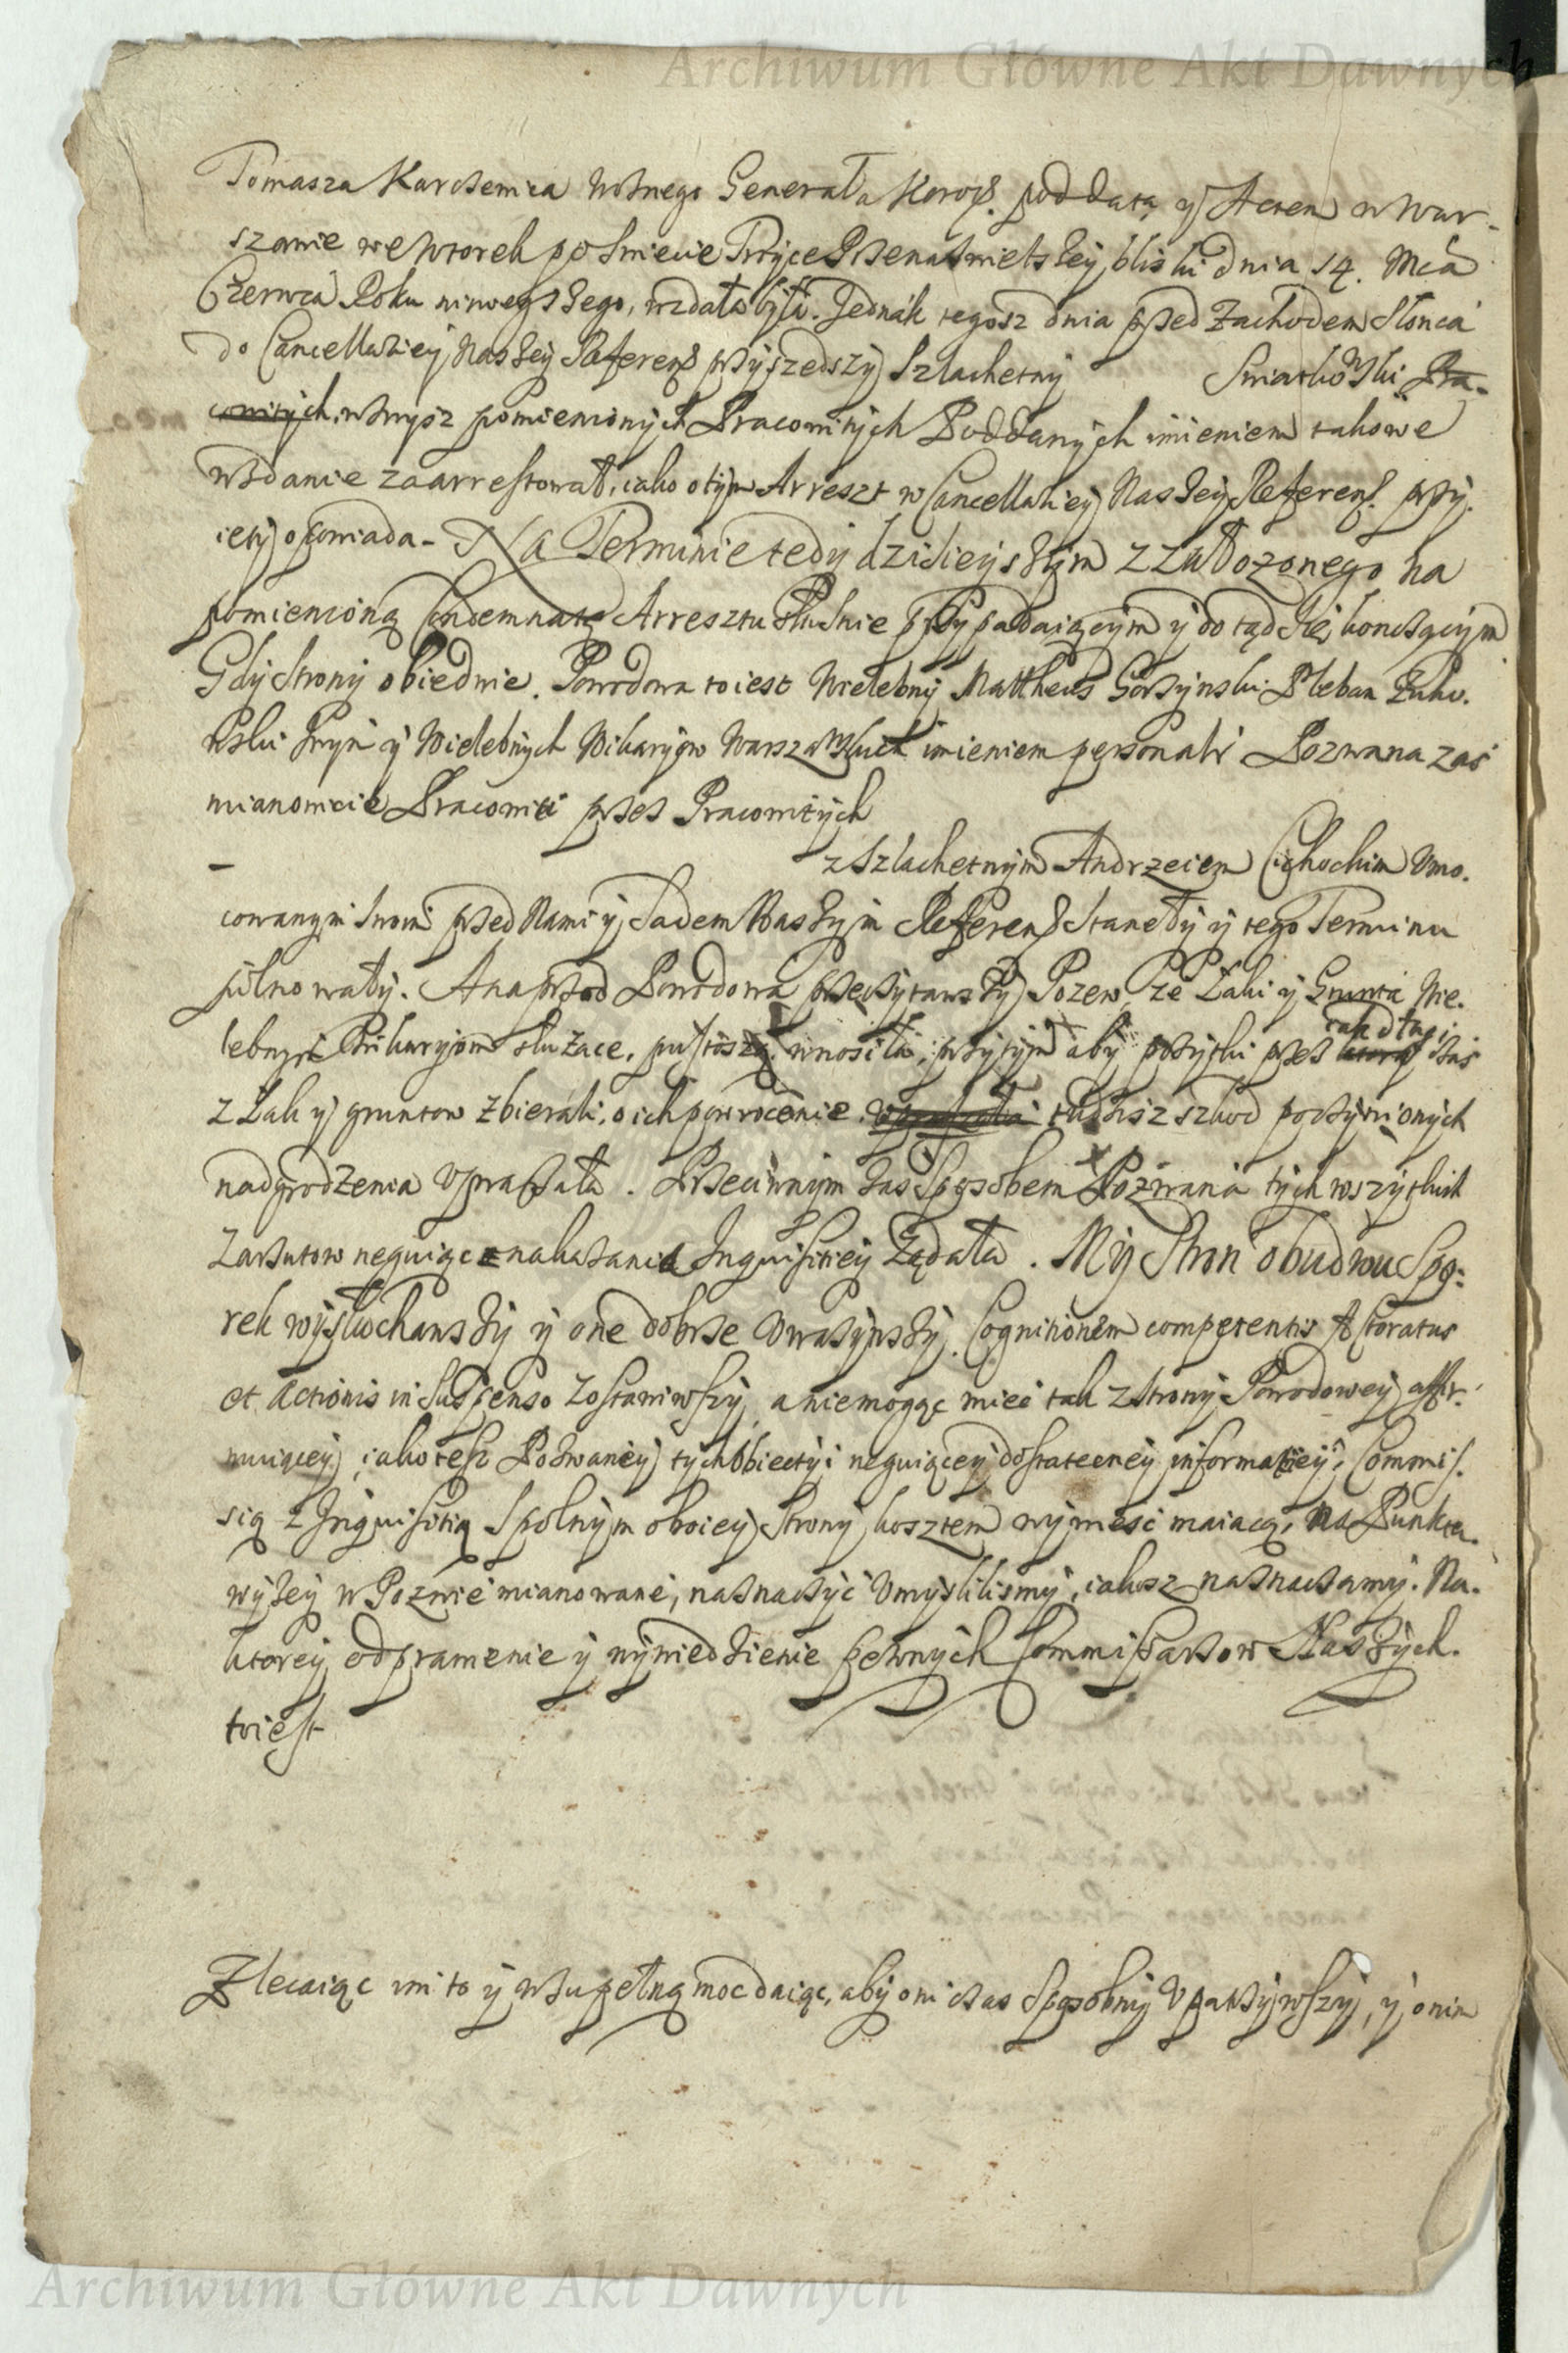 Archiwum Główne Akt Dawnych
Tomasza Karczewica Woźnego Generała Koron. pod datą y Actem w War-
szawie we wtorek po Swiecie Troyce Przenaswietszey bliski dnia 14. Mca
Czerwca Roku ninieyszego, wzdała była. Jednak tegosz dnia przed Zachodem Słonca
do Cancellariey Naszey Referens. przyszedszy Szlachetny Swiatkowski Pra-
cowitych, wzwysz pomienionych Pracowitych Poddanych imieniem takowe
wzdanie zaarrestował, iako o tym Arreszt w Cancellariey Naszey Referens. przy-
iety opowiada - Na Terminie tedy dzisieyszym z założonego na
pomienioną Condemnatę Arresztu słusnie przypadaiącym y do tąd się konczącym
Gdy strony obiedwie. Powodowa to iest Wielebny Mattheus Gorzynski Pleban Zuko-
wski swym y Wielebnych Wikaryow Warszawskich imieniem personalr Pozwana zas
mianowicie Pracowici przez Pracowitych
z Szlachetnym Andrzeiem Cichockim Umo-
cowanym swoim przed Nami y Sadem Naszym Referens. Staneły y tego Terminu
pilnowały. A naprzod Powodowa przeczytawszy Pozew, ze Łaki y Grunta Wie-
lebnym Wikaryom służace, pustoszą wnosiła, przytym aby pozytki przez
tak długi
czas
z Łak y gruntow zbierali, o ich powrocenie tudzisz szkod poczynionych
nadgrodzenia upraszała. Przeciwnym zas sposobem Pozwana tych wszytkich
Zarzutow neguiąc nakazania Inquisitiey Ządała. My Stron obudwu Spo-
rek wysłuchawszy y one dobrze uwazywszy, Cognitionem competentis Actoratus
et Actionis in suspenso zostawiwszy, a niemogąc miec tak z strony Powodowey affir-
muiącey, iako tesz Pozwaney tych Obiectyi neguiącey dostateczney informatiey, Commis-
sią z Inquisitią Spolnym oboiey Strony kosztem wyniesc maiacą, Na Punkta
wyzey w Pozwie mianowane, naznaczyc umyslilismy, iakosz naznaczamy. Na
ktorey odprawienie y wywiedzienie pewnych Commissarzow Naszych.
to iest
Zlecaiąc im to y wzupełną moc daiąc, aby oni czas sposobny upatrzywszy, y onim
Archiwum Główne Akt Dawnych